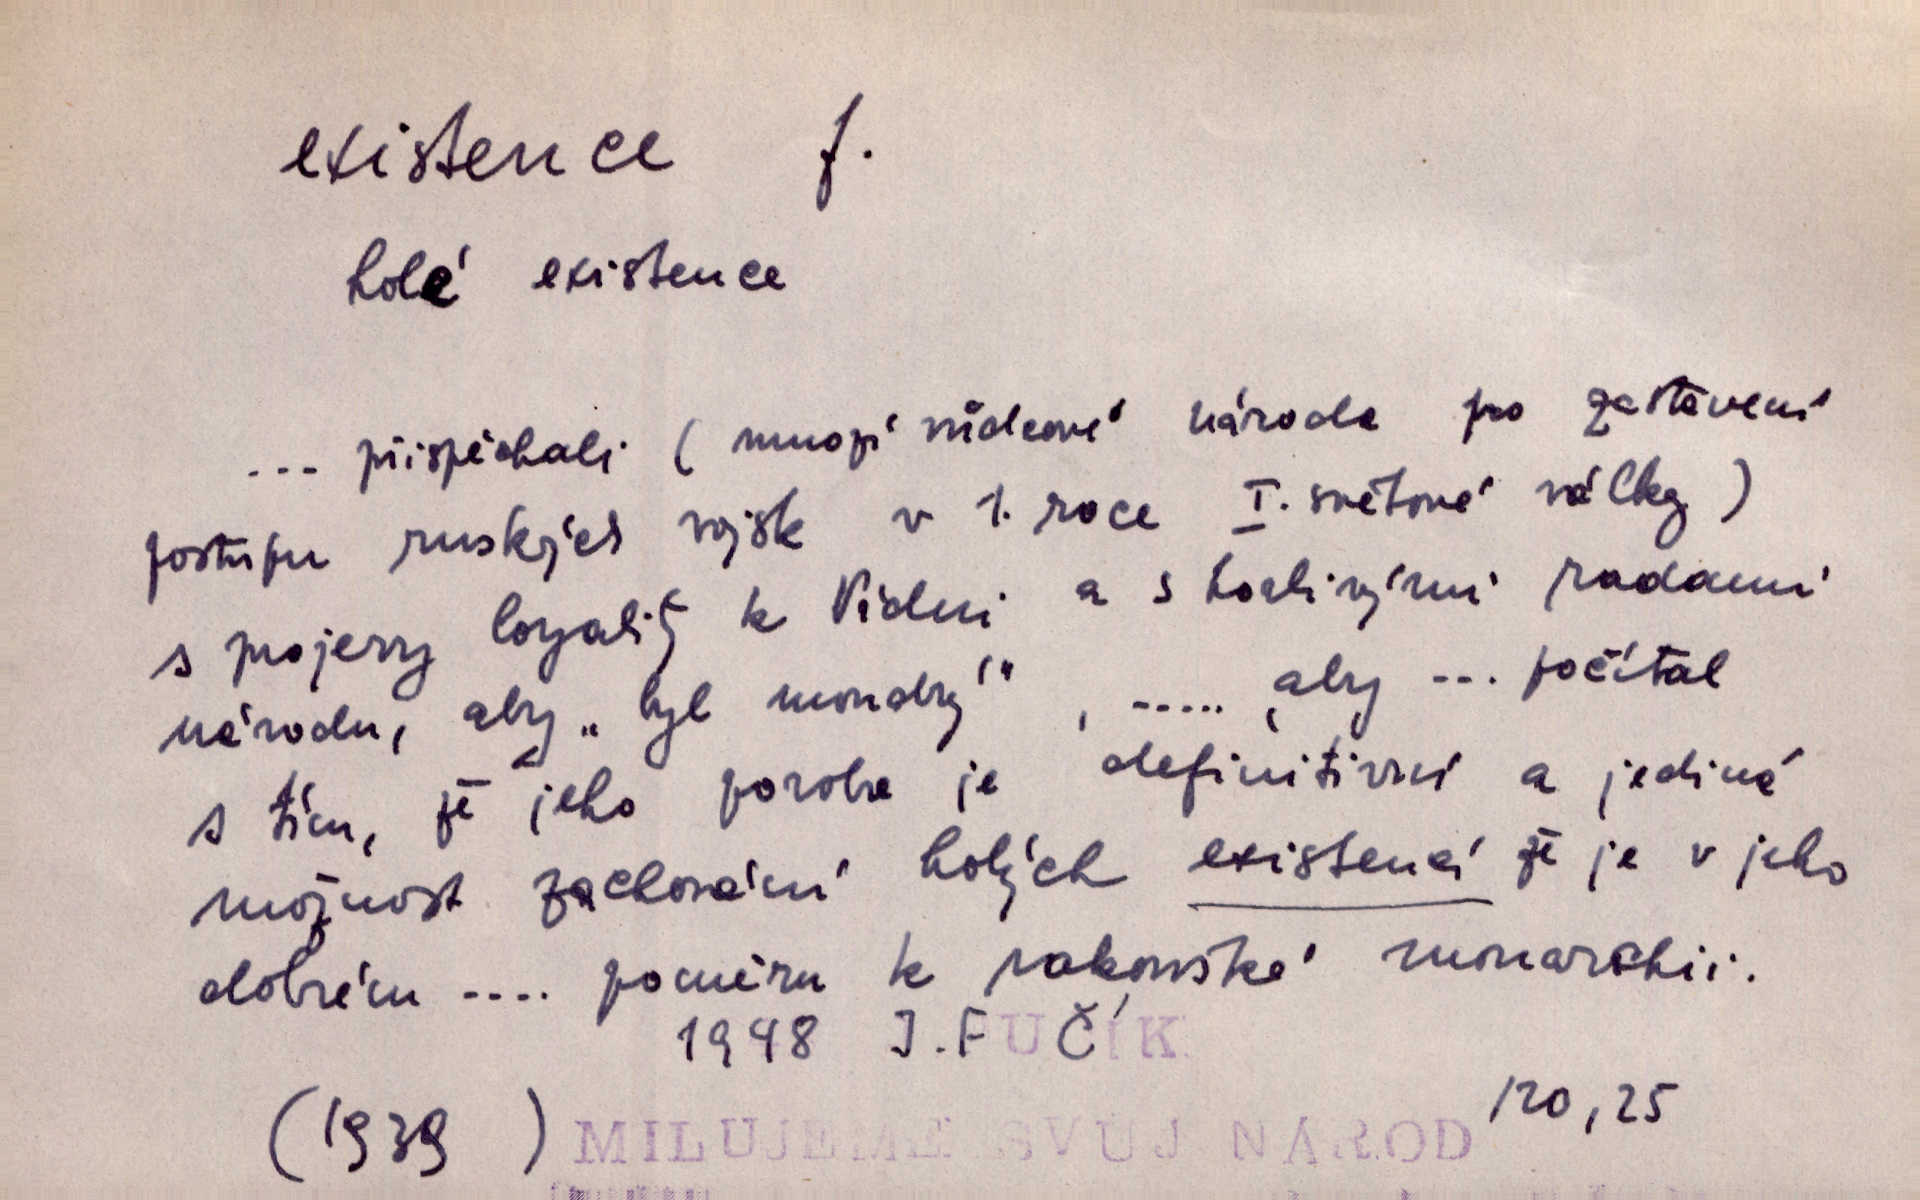 existence f.
holé existence
--- přispěchali (mnozí vůdcové národa po zastavení
postupu ruských vojsk v 1. roce I. světové války)
s projevy loyality k Vídni a s horlivými radami
národu, aby „byl moudrý" , ..... , aby --- počítal
s tím, že jeho poroba je definitivní a jediná
možnost zachování holých existencí že je v jeho
dobrém .... poměru k rakouské monarchii.
1948 J. FUČÍK
(1939 ) MILUJEME SVŮJ NÁROD 120, 25